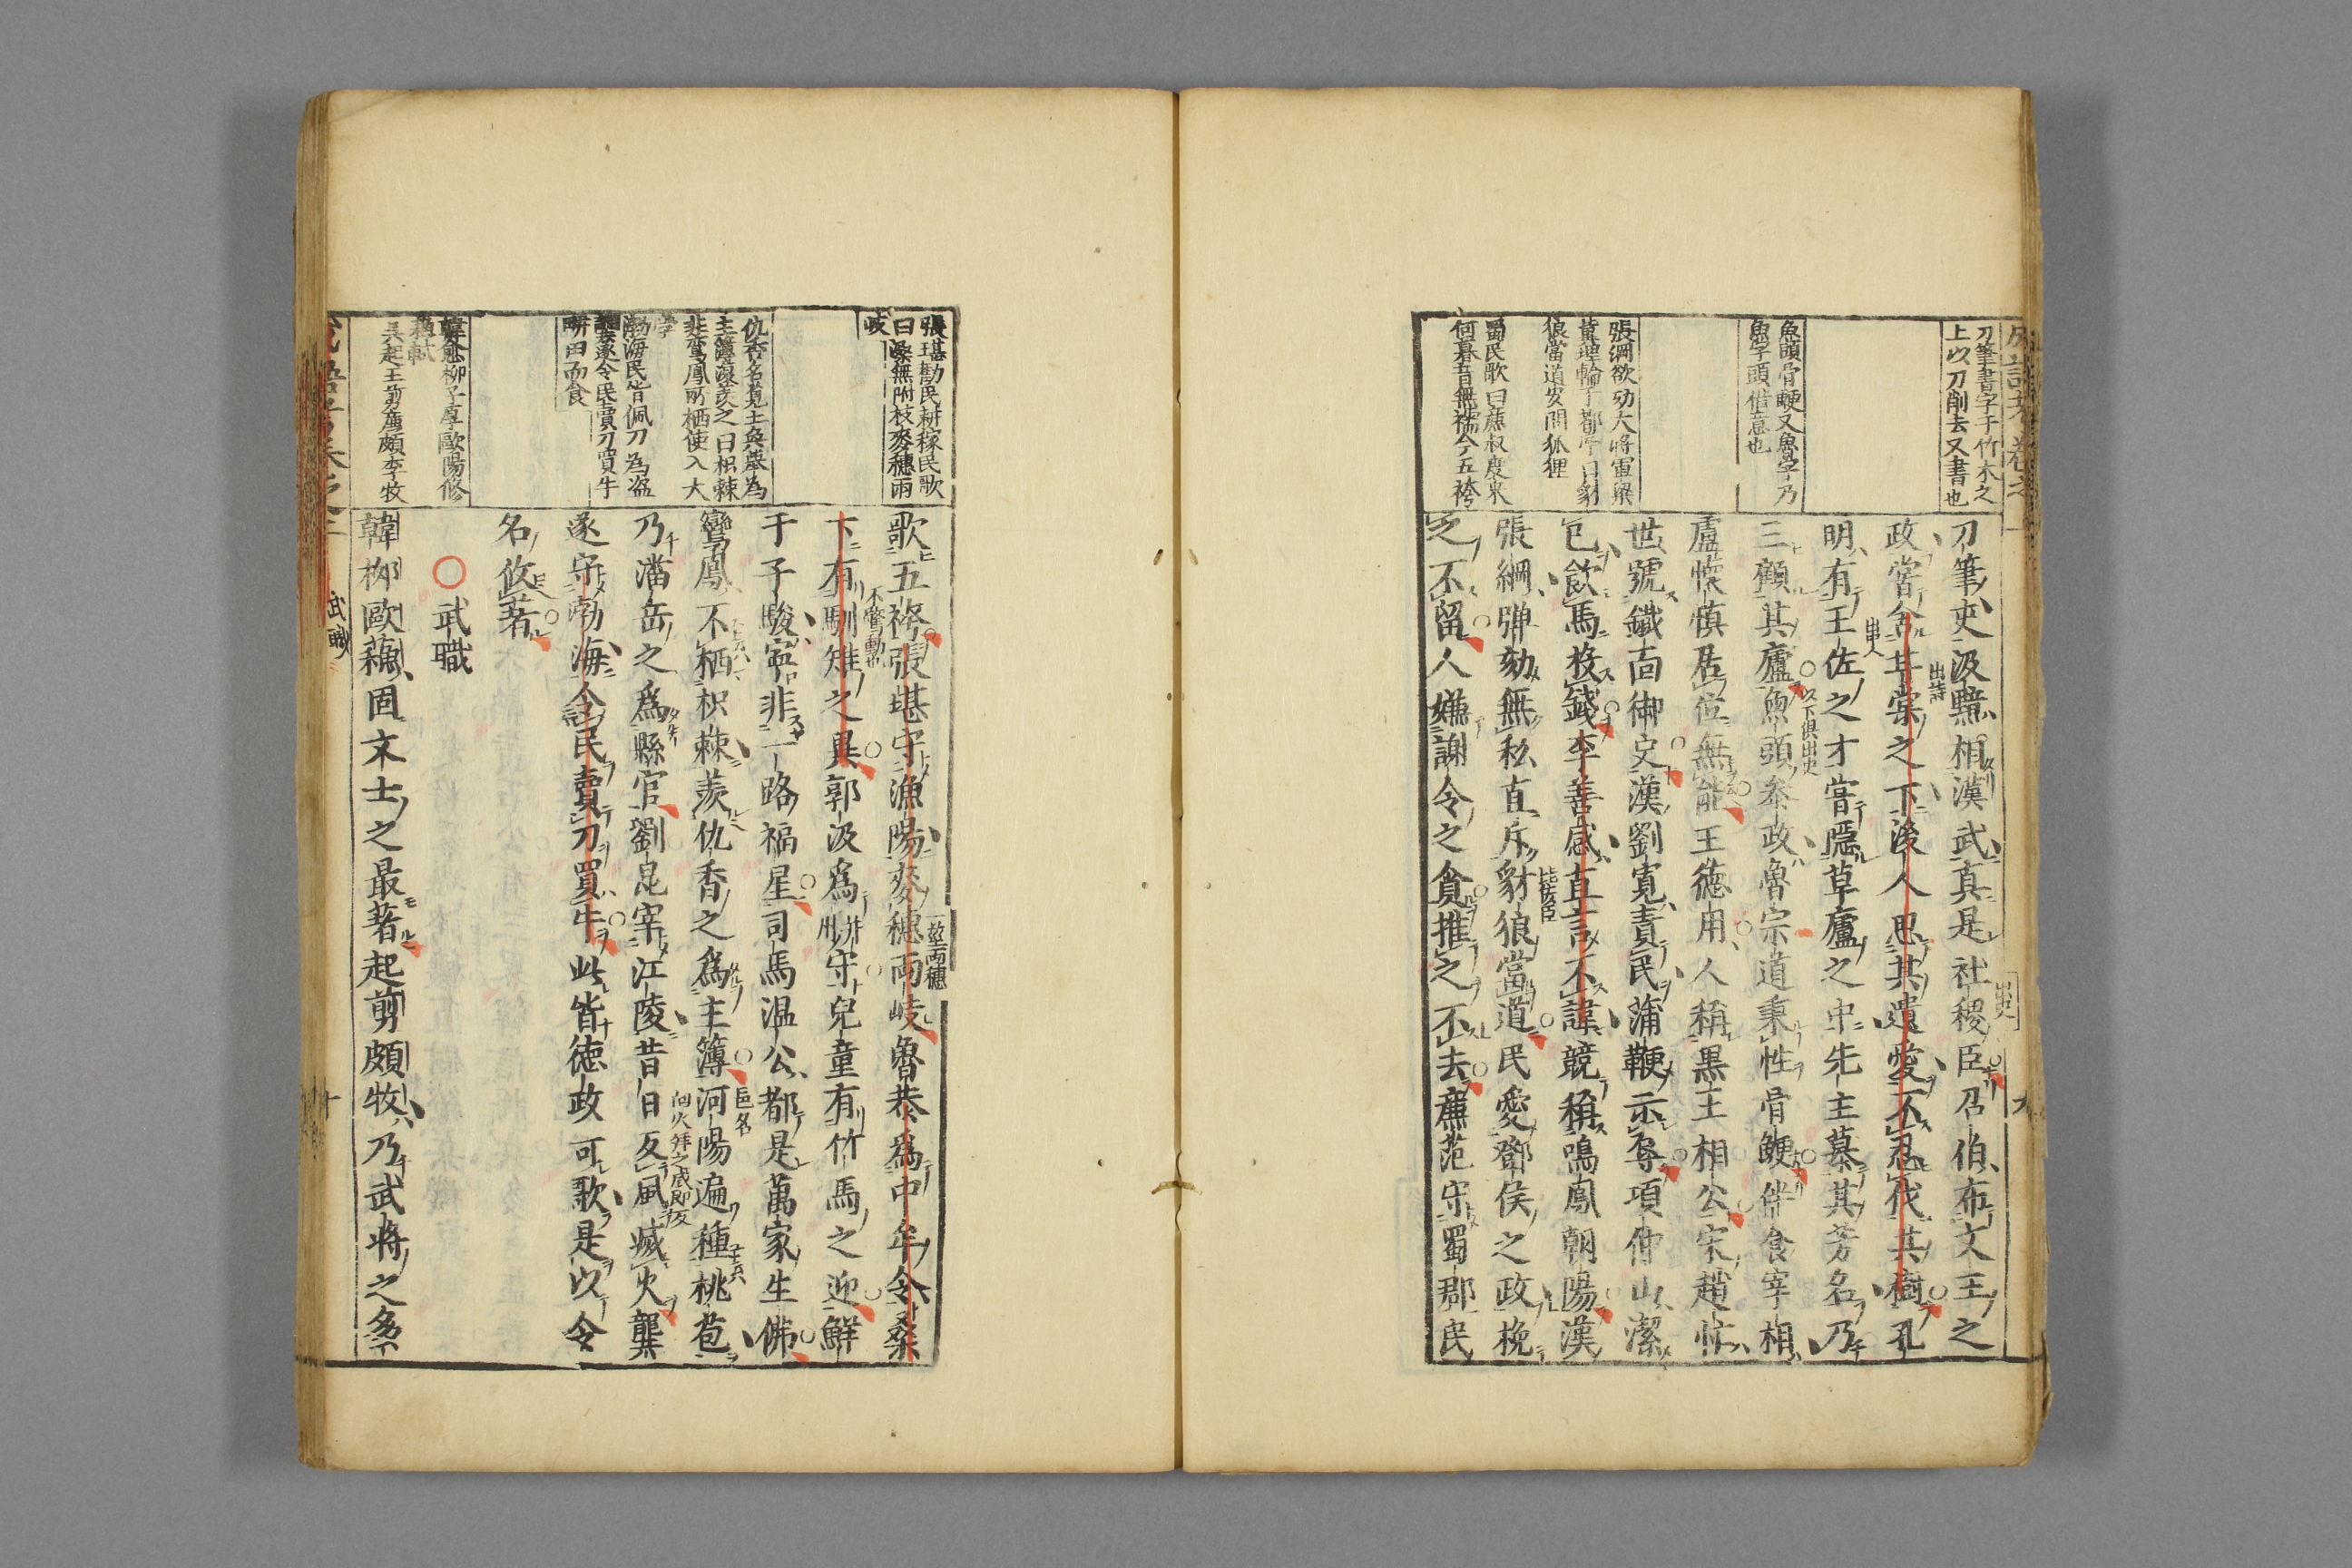 刀筆書字于竹木之
上以刀削去又書也
魚頭骨鯁又魯字乃
魚字頭借意也
張綱欲劾大將軍梁
蜀民歌曰廉叔度來
何暮昔無襦今五袴
狼當道安問狐狸
刀筆吏汲黯相漢武真是社稷臣召伯布文王之
出史
政嘗舍甘棠之下後人思其遺愛不忍伐其樹孔
出詩
明有王佐之才嘗隱草廬之中先主慕其芳名乃
三顧其廬魚頭參政魯宗道秉性骨鯁伴食宰相
以下俱出史
盧懷慎居位無能王德用人稱黑王相公宋趙忭
世號鐵面御史漢劉寬責民蒲鞭示辱項仲山潔
己飲馬投錢李善感直言不諱競稱鳴鳳朝陽漢
張綱弹劾無私直斥豺狼當道民愛鄧侯之政挽
比佞臣
之不留人嫌謝令之貪推之不去廉范守蜀郡民
張堪勸民耕稼民歌
曰桑無附枝麥穗兩
岐
仇香名覽王奐
非鸞鳳所栖使入大
渤海民皆佩刀為盜
龔遂令民賣刀買牛
耕田而食
韓愈柳子厚歐陽修
蘇軾
吳起王剪廉頗李牧
歌五袴張堪守漁陽麥穗兩岐魯恭爲中牟令桑
一莖兩穗
下有馴雉之異郭汲爲并州守兒童有竹馬之迎鮮
不驚動也
于子駿寧非一路福星司馬温公都是萬家生佛
鸞鳳不栖枳棘羨仇香之爲主簿河陽遍種桃花
邑名
乃潘岳之爲縣官劉昆宰江陵昔日反風滅火龔
向火拜之風即反
遂守渤海令民賣刀買牛此皆德政可歌是以令
名攸著
○武職
韓柳歐蘇固文士之最著起剪頗牧乃武將之多
武職